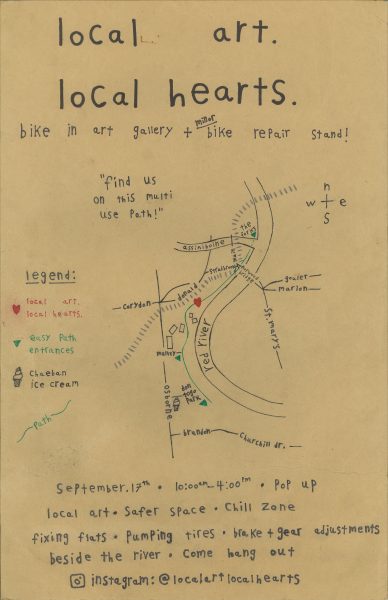 local art.
local hearts.
minor
bike in art gallery + bike repair stand!
"find us
on this multi
use path!"
n
w e
S
the forks
assiniboine
Stradbrook
donald
Corydon
goulet
marion
St. mary's
red river
mulvey
osborne
don togo park
brandon
Churchill dr.
legend:
local art.
local hearts.
easy path
entrances
Chaeban
ice cream
path
September. 17th • 10:00am - 4:00pm • Pop up
local art • Safer space • Chill Zone
fixing flats • Pumping tires • brake + gear adjustments
beside the river • Come hang out
instagram: @localartlocalhearts